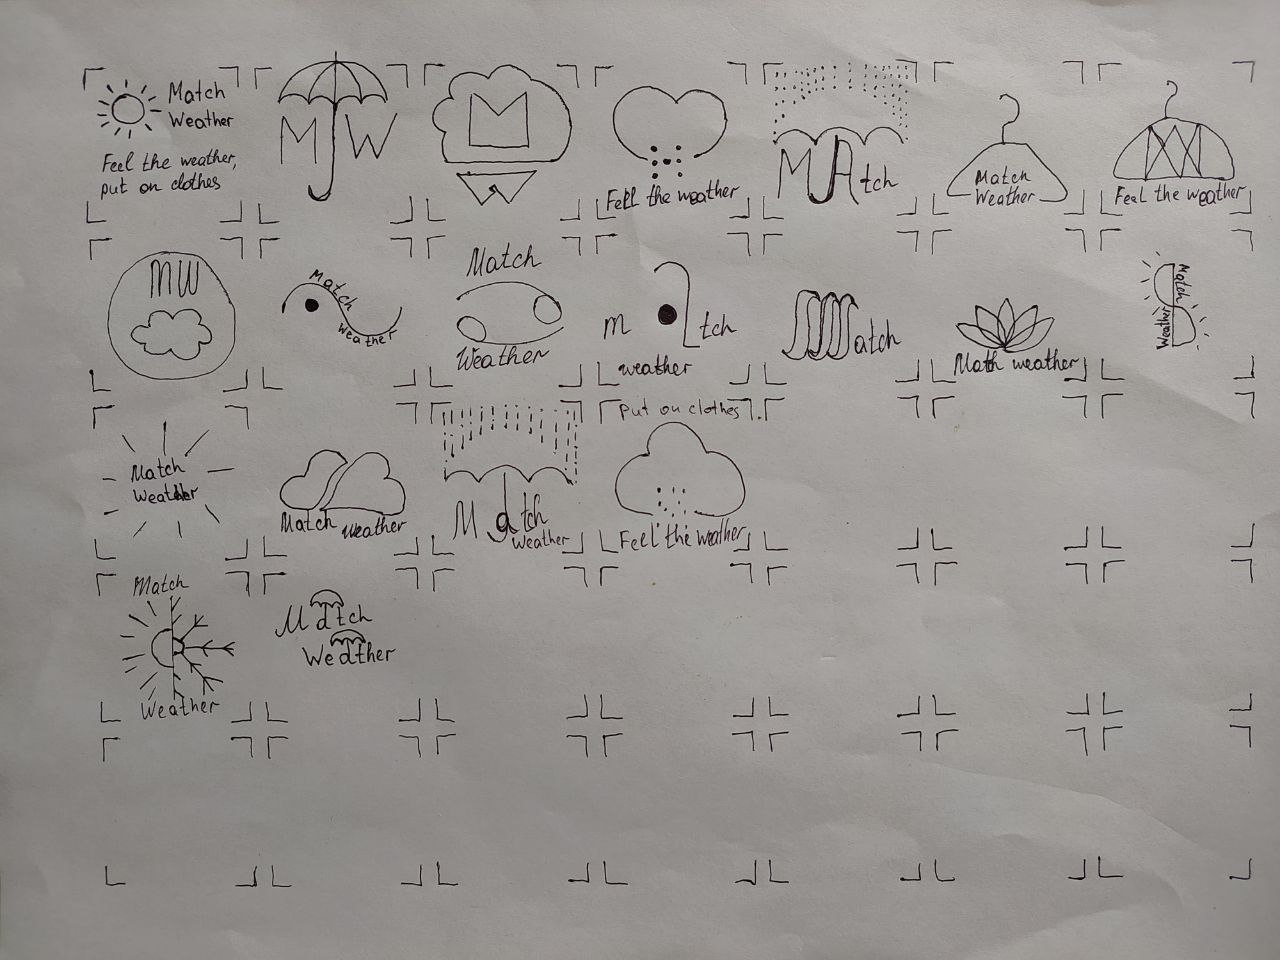 Match
Weather
Feel the weather,
put on clothes
M W
M
W
Fell the weather
MAtch
Match
Weather
Feel the weather
MW
Match
Weather
Match
Weather
m tch
weather
Match
Math weather
Match
Weather
Match
Weather
Match Weather
Match
Weather
Put on clothes
Feel the weather
Match
Weather
Match
Weather